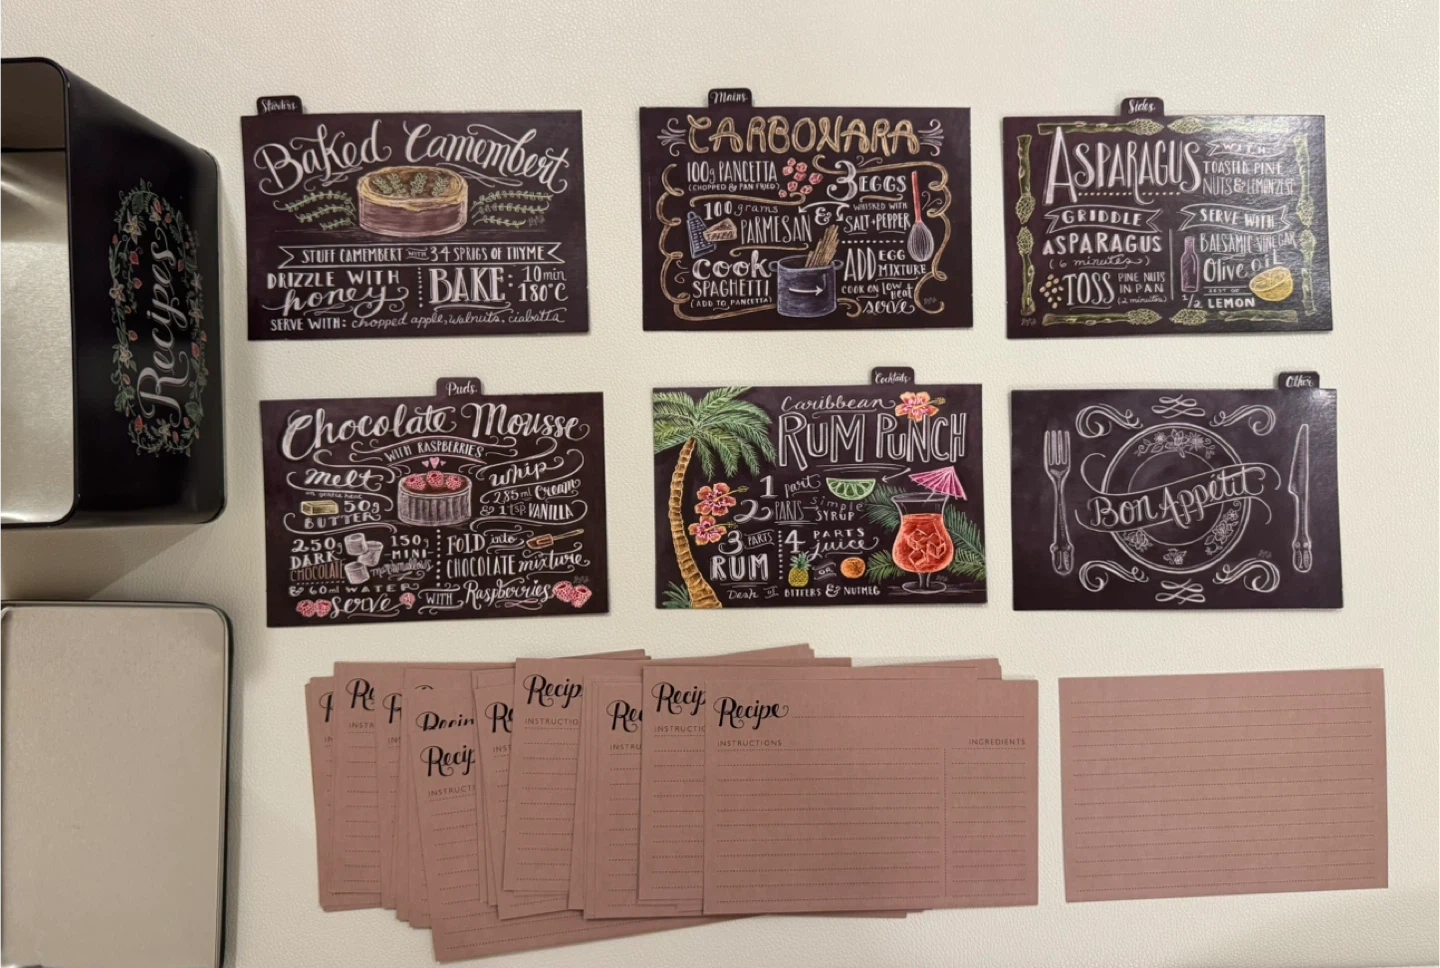 Recipes
Starters
Baked Camembert
STUFF CAMEMBERT WITH 3-4 SPRIGS OF THYME
DRIZZLE WITH
honey
BAKE: 10 min
180°C
SERVE WITH: chopped apple, walnuts, ciabatta
Mains
CARBONARA
100g PANCETTA
(CHOPPED & PAN FRIED)
3 EGGS
WHISKED WITH
SALT + PEPPER
100 grams
PARMESAN &
cook
SPAGHETTI
(ADD TO PANCETTA)
ADD EGG
MIXTURE
COOK ON low
heat
serve
Sides
ASPARAGUS
WITH
TOASTED PINE
NUTS & LEMON ZEST
GRIDDLE
ASPARAGUS
(6 minutes)
TOSS PINE NUTS
IN PAN
(2 minutes)
SERVE WITH
BALSAMIC VINEGAR
Olive oil
ZEST OF
1/2 LEMON
Puds
Chocolate Mousse
WITH RASPBERRIES
melt
on gentle heat
50g
BUTTER
250g
DARK
CHOCOLATE
150g
MINI-
marshmallows
& 60ml WATER
whip
285ml Cream
& 1 tsp VANILLA
FOLD into
CHOCOLATE mixture
serve WITH Raspberries
Cocktails
Caribbean
RUM PUNCH
1 part
2 PARTS simple
SYRUP
3 PARTS
RUM
4 PARTS
juice
OR
Dash OF BITTERS & NUTMEG
Other
Bon Appétit
Re
Recip
INSTRUCTIO
Recip
INSTRUCTI
Recip
INSTRUCTIO
Recipe
INSTRUCTIONS
INGREDIENTS